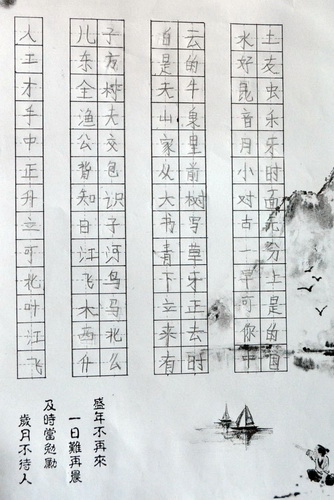 人 儿子 白云 水土
工 东方 是的 好友
才 全 天牛 昆虫
手 渔夫 山泉 音乐
中 公交 家里 月牙
正 背包 从前 小时
丹 知识 大树 对面
立 日子 书写 古
可 江河 青草 一分
北 飞鸟 下牙 早上
叶 木马 立正 可是
江 西北 来去 你的
飞 什么 有时 中国
盛年不再來
一日難再晨
及時當勉勵
歲月不待人